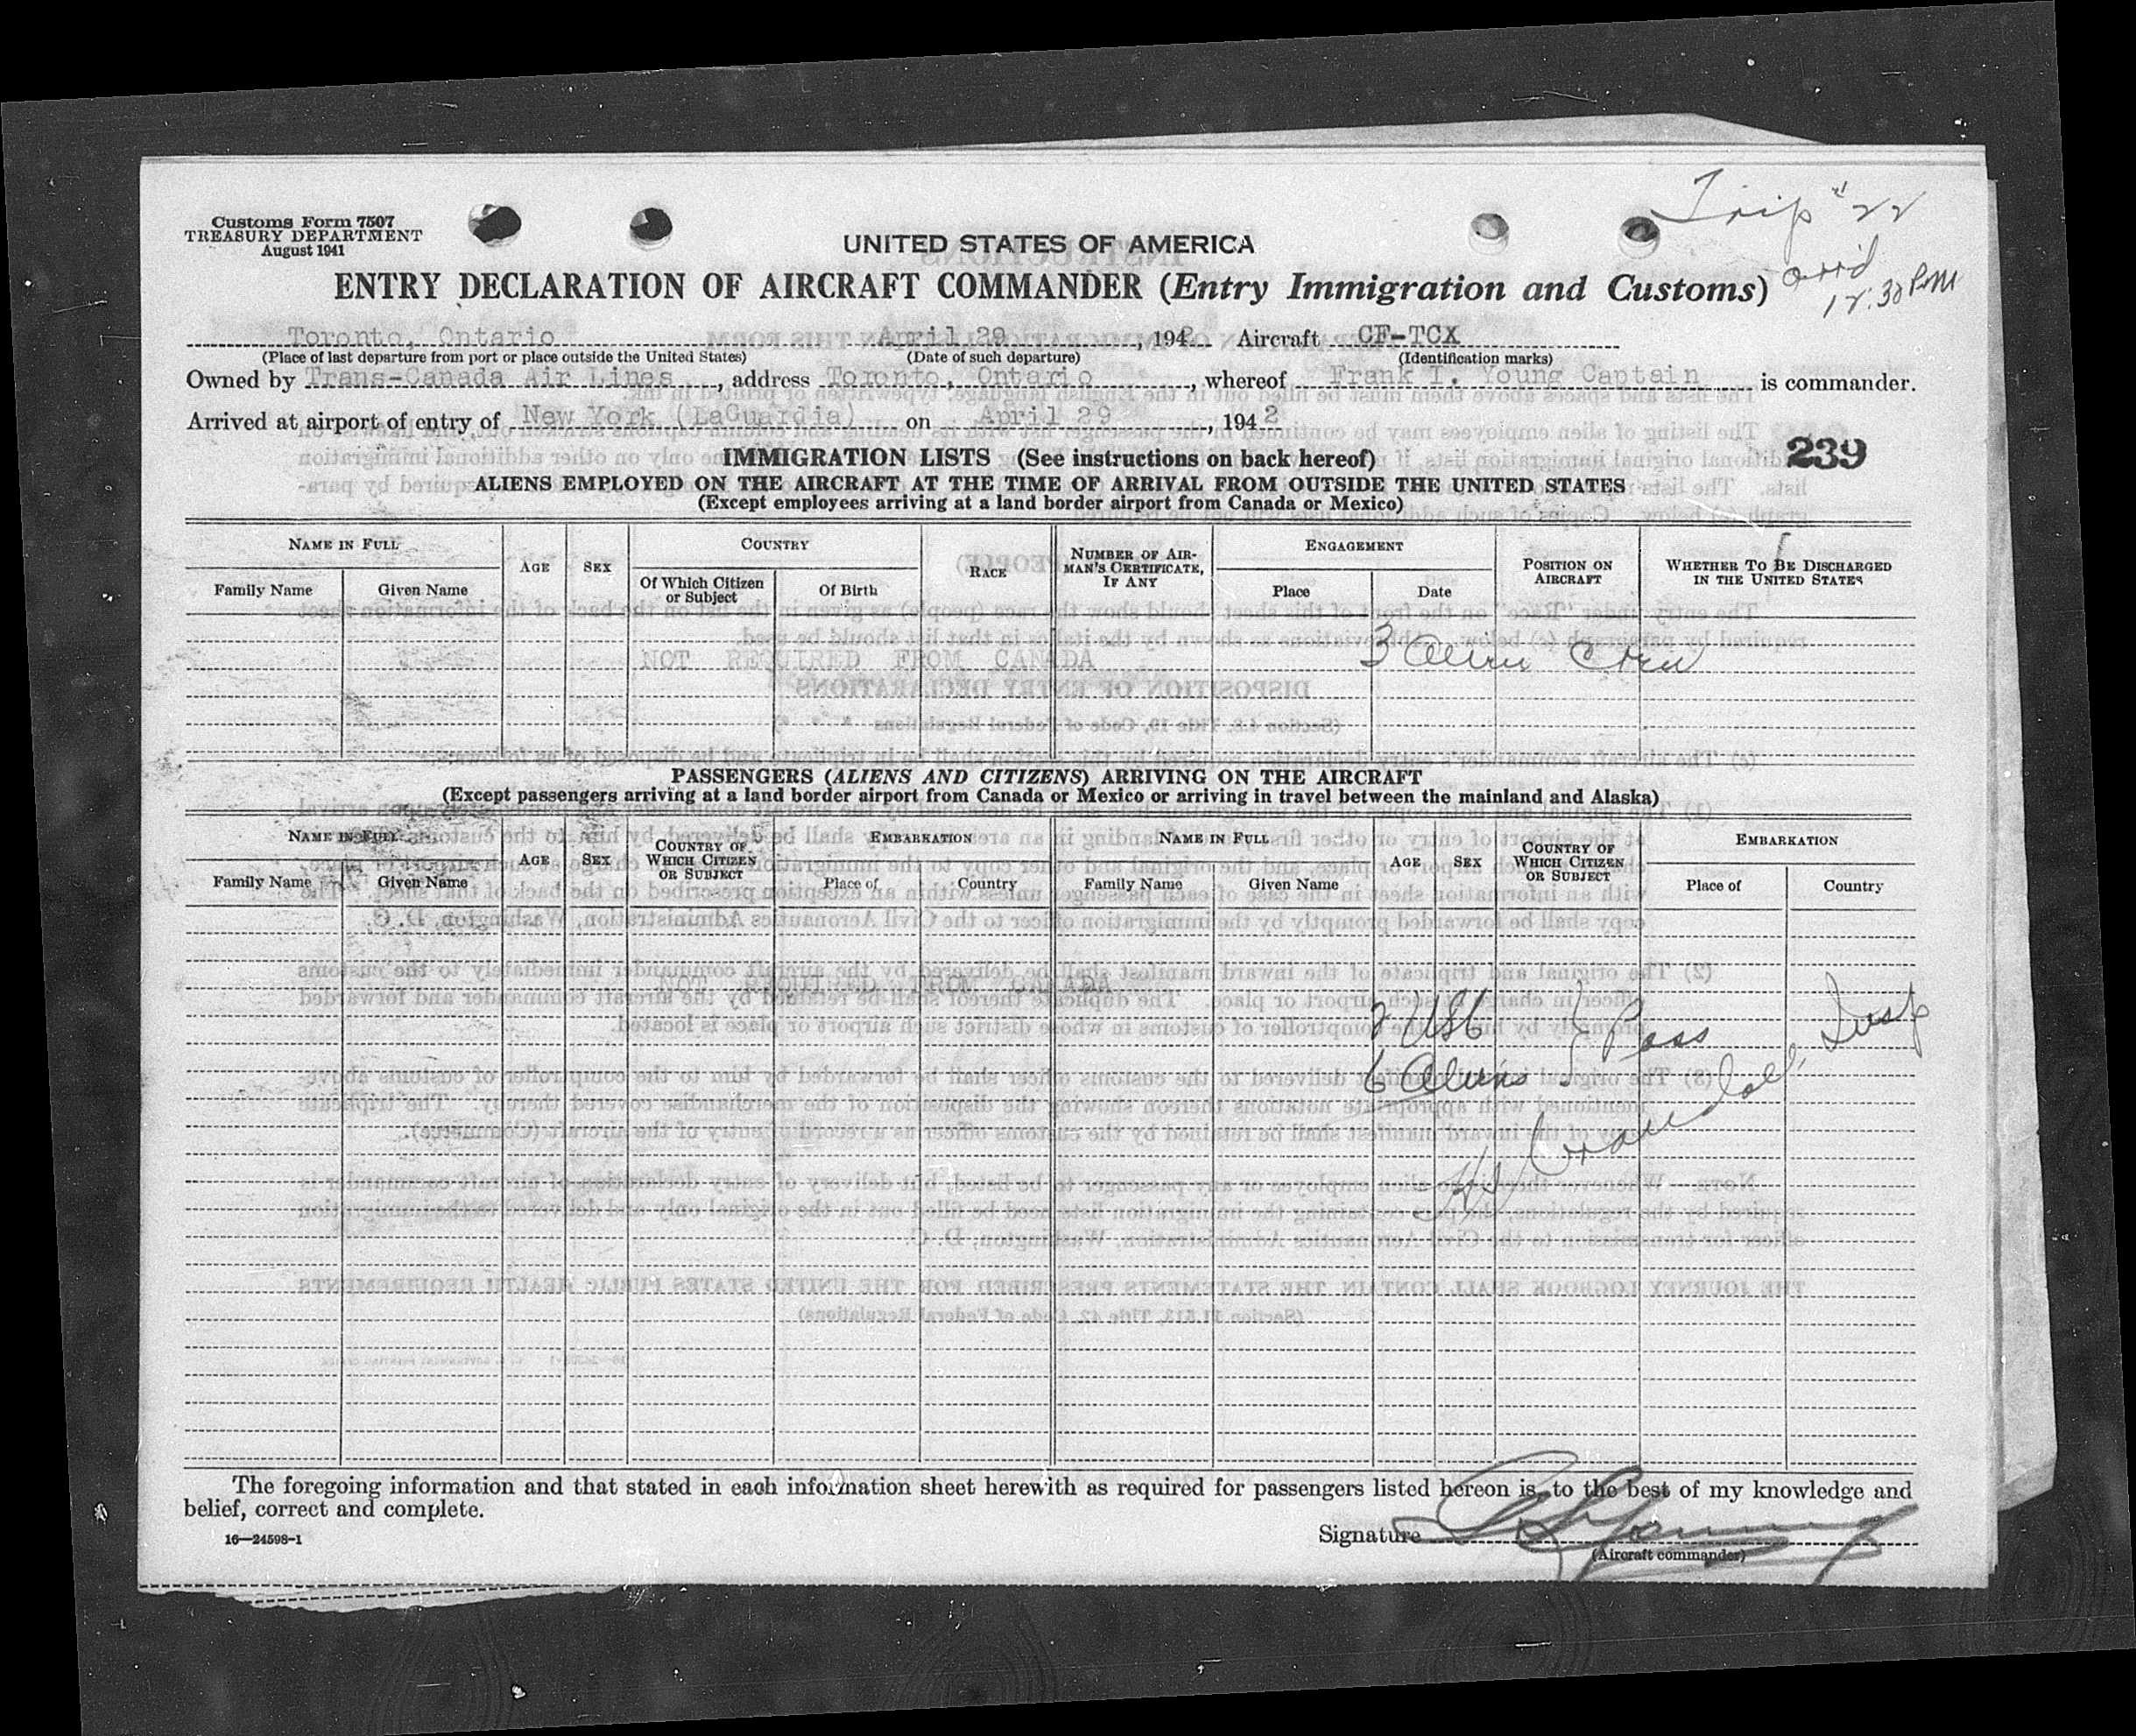 Trip #22
Customs Form 7507
TREASURY DEPARTMENT
August 1941
UNITED STATES OF AMERICA
ENTRY DECLARATION OF AIRCRAFT COMMANDER (Entry Immigration and Customs)
arrd
12:30 PM
Toronto, Ontario April 29, 1942 Aircraft CF-TCX
(Place of last departure from port or place outside the United States) (Date of such departure) (Identification marks)
Owned by Trans-Canada Air Lines, address Toronto, Ontario, whereof Frank I. Young Captain is commander.
Arrived at airport of entry of New York (LaGuardia) on April 29, 1942
239
IMMIGRATION LISTS (See instructions on back hereof)
ALIENS EMPLOYED ON THE AIRCRAFT AT THE TIME OF ARRIVAL FROM OUTSIDE THE UNITED STATES
(Except employees arriving at a land border airport from Canada or Mexico)
NAME IN FULL AGE SEX COUNTRY RACE NUMBER OF AIRMAN'S CERTIFICATE, IF ANY ENGAGEMENT POSITION ON AIRCRAFT WHETHER TO BE DISCHARGED IN THE UNITED STATES
Family Name Given Name Of Which Citizen or Subject Of Birth Place Date
NOT REQUIRED FROM CANADA 3 Alien Crew
PASSENGERS (ALIENS AND CITIZENS) ARRIVING ON THE AIRCRAFT
(Except passengers arriving at a land border airport from Canada or Mexico or arriving in travel between the mainland and Alaska)
NAME IN FULL AGE SEX COUNTRY OF WHICH CITIZEN OR SUBJECT EMBARKATION NAME IN FULL AGE SEX COUNTRY OF WHICH CITIZEN OR SUBJECT EMBARKATION
Family Name Given Name Place of Country Family Name Given Name Place of Country
NOT REQUIRED FROM CANADA
2 USC
6 Aliens } Pass
Crandall, Insp
The foregoing information and that stated in each information sheet herewith as required for passengers listed hereon is, to the best of my knowledge and
belief, correct and complete.
16—24598-1
Signature
(Aircraft commander)